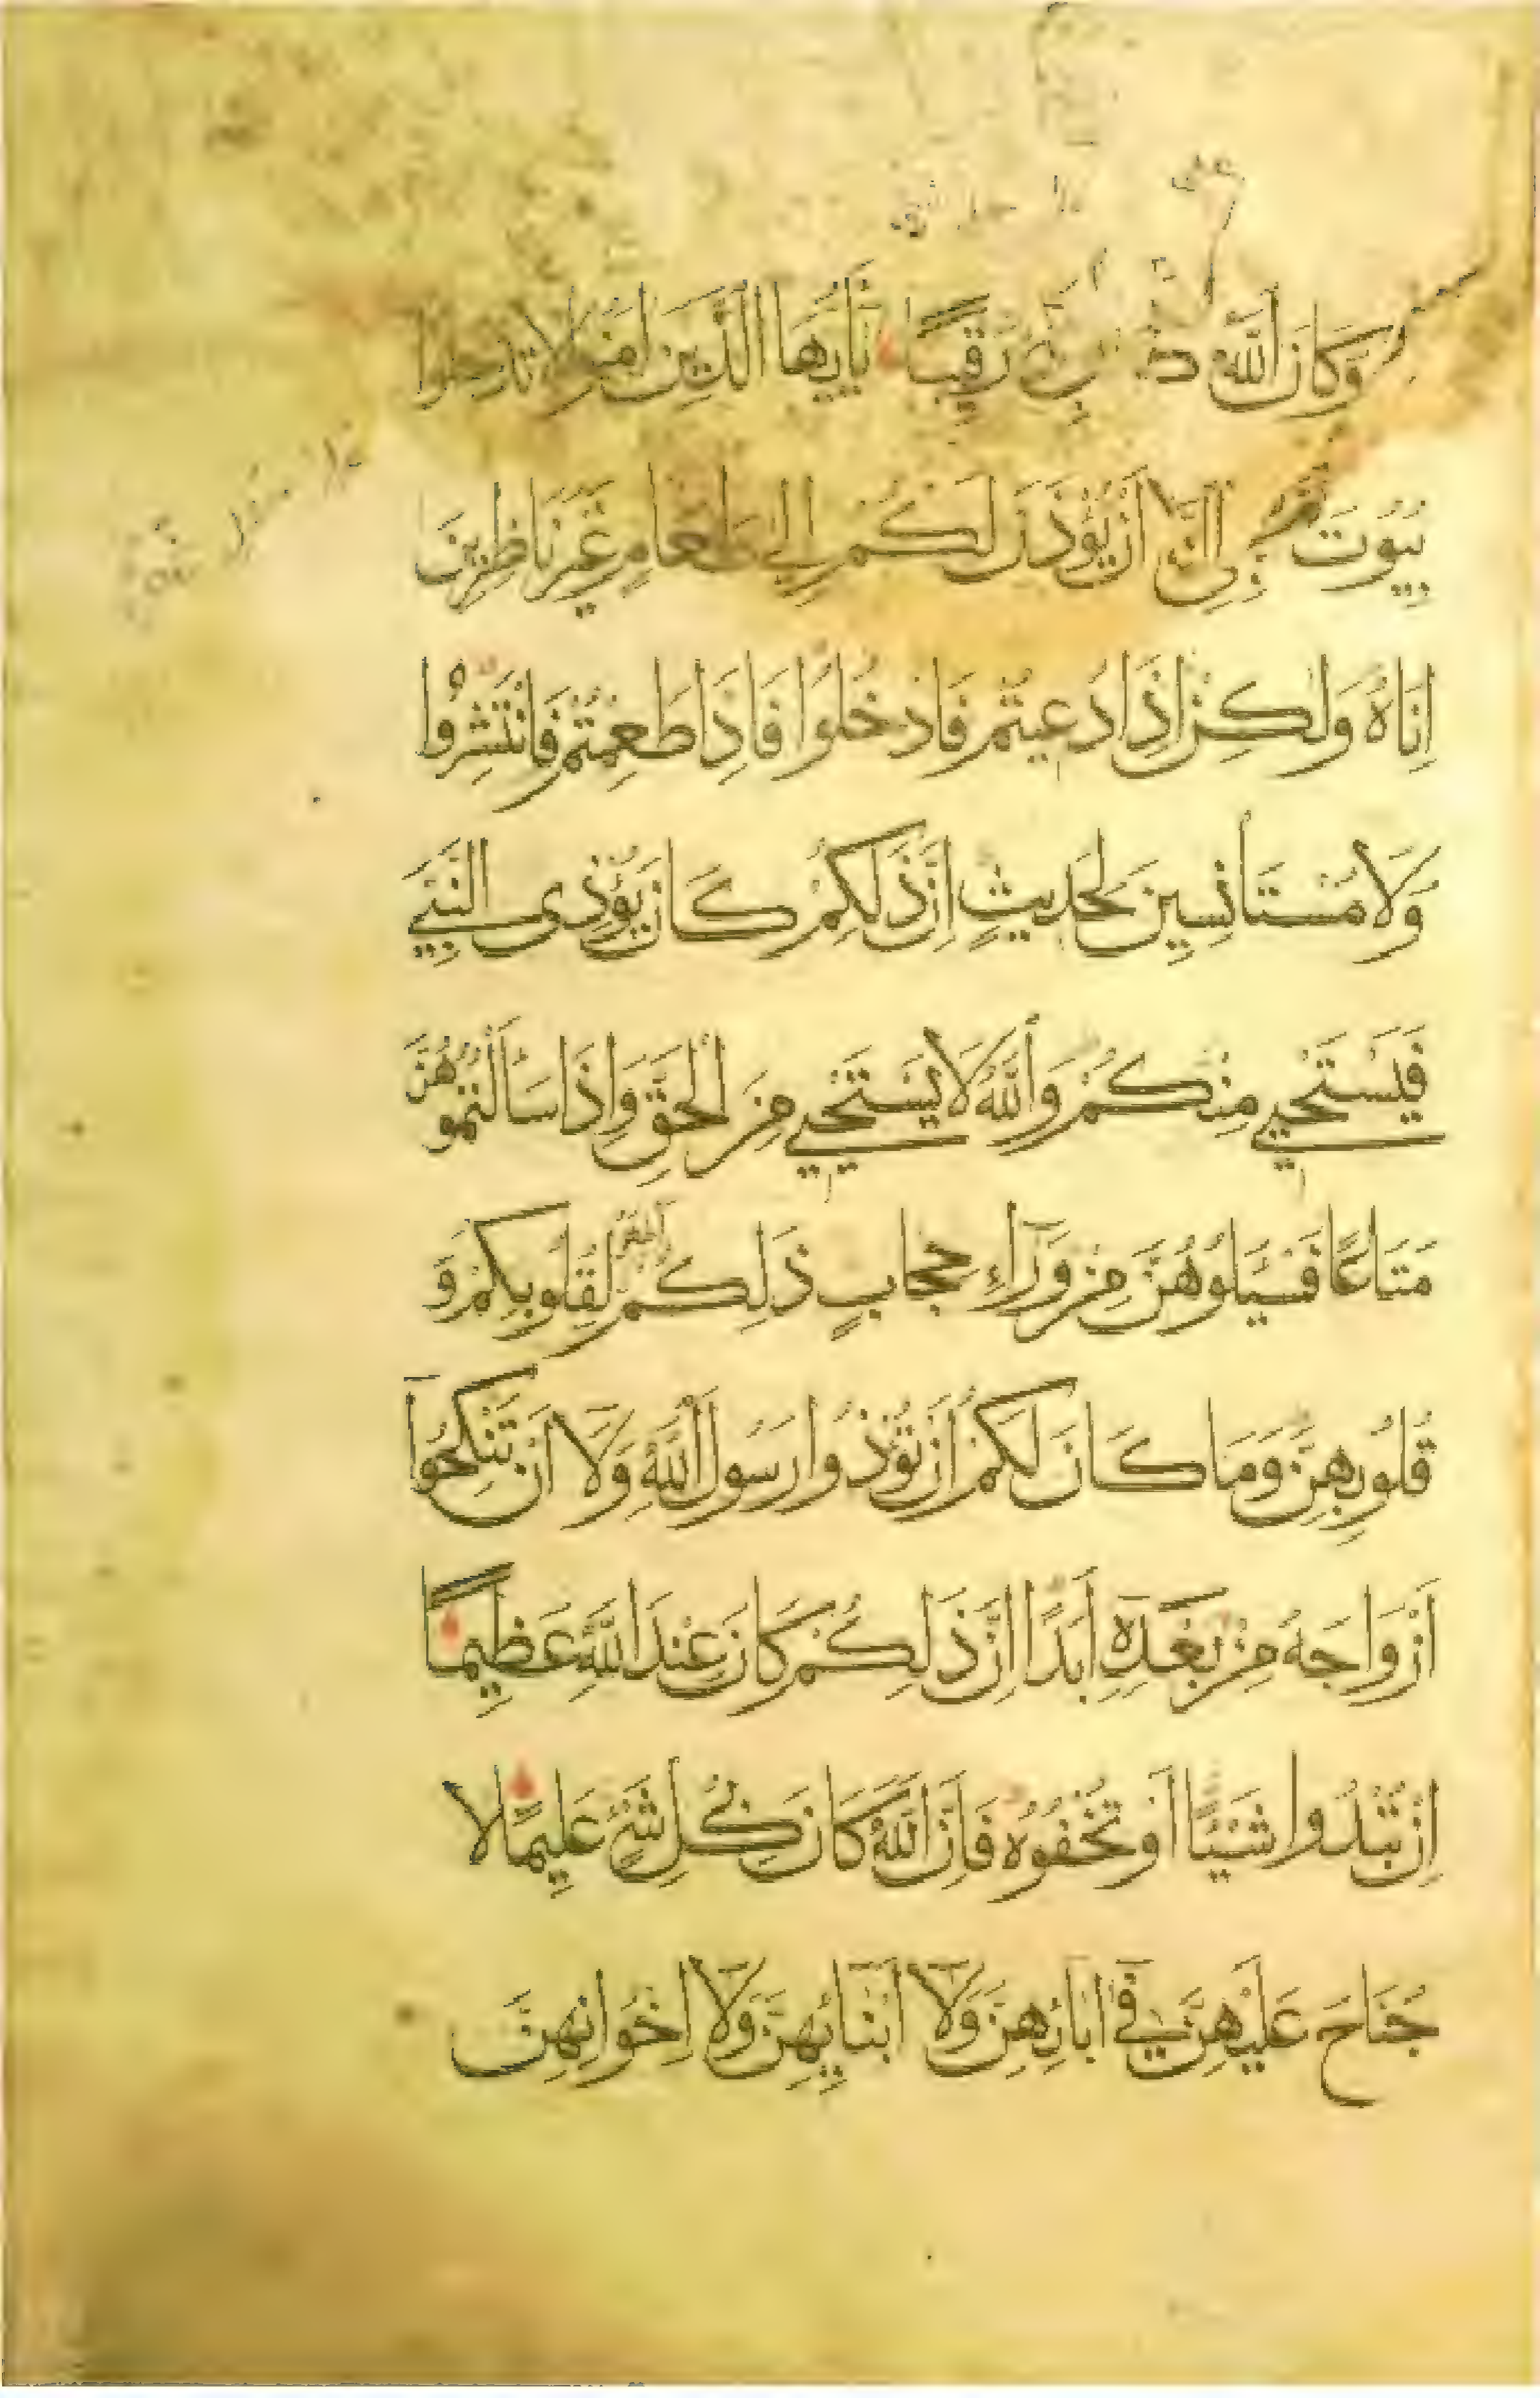 وَكَانَ اللَّهُ رَقِيبًا يَاأَيُّهَا الَّذِينَ امَنُوا لَا تَدْخُلُوا
بُيُوتَ النَّبِيِّ إِلَّا أَنْ يُؤْذَنَ لَكُمْ إِلَى طَعَامٍ غَيْرَ نَاظِرِينَ
إِنَاهُ وَلَكِنْ إِذَا دُعِيتُمْ فَادْخُلُوا فَإِذَا طَعِمْتُمْ فَانْتَشِرُوا
وَلَا مُسْتَانِسِينَ لِحَدِيثٍ إِنَّ ذَلِكُمْ كَانَ يُؤْذِى النَّبِيَّ
فَيَسْتَحْيِي مِنْكُمْ وَاللَّهُ لَا يَسْتَحْيِي مِنَ الْحَقِّ وَإِذَا سَأَلْتُمُوهُنَّ
مَتَاعًا فَسْئَلُوهُنَّ مِنْ وَرَآءِ حِجَابٍ ذَلِكُمْ أَطْهَرُ لِقُلُوبِكُمْ وَ
قُلُوبِهِنَّ وَمَا كَانَ لَكُمْ أَنْ تُؤْذُوا رَسُولَ اللَّهِ وَلَا أَنْ تَنْكِحُوا
أَزْوَاجَهُ مِنْ بَعْدِهِ أَبَدًا إِنَّ ذَلِكُمْ كَانَ عِنْدَ اللَّهِ عَظِيمًا
إِنْ تُبْدُوا شَيْئًا أَوْ تُخْفُوهُ فَإِنَّ اللَّهَ كَانَ بِكُلِّ شَيْءٍ عَلِيمًا لَا
جُنَاحَ عَلَيْهِنَّ فِي آبَائِهِنَّ وَلَا أَبْنَائِهِنَّ وَلَا إِخْوَانِهِنَّ